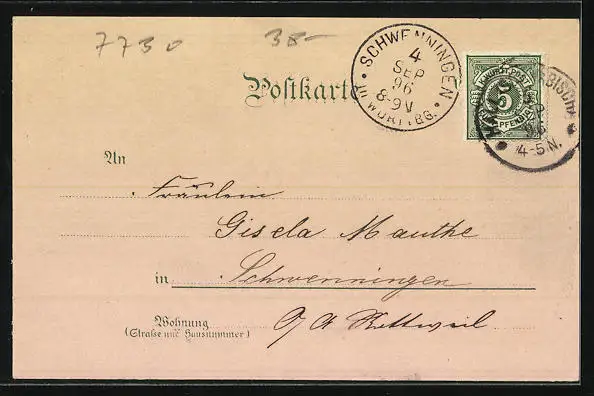 7730
38-
SCHWENNINGEN
4
SEP
96
8-9V
WÜRTTBG.
Postkarte
K. WÜRTT. POST
5
PFENNIG
SEP
96
4-5N.
An
Fräulein
Gisela Mauthe
in Schwenningen
Wohnung
(Straße und Hausnummer)
O/A Rottweil